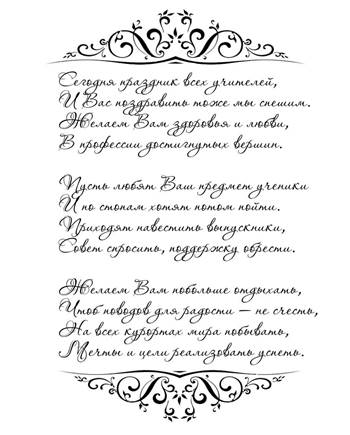 Сегодня праздник всех учителей,
И Вас поздравить тоже мы спешим.
Желаем Вам здоровья и любви,
В профессии достигнутых вершин.
Пусть любят Ваш предмет ученики
И по стопам хотят потом пойти.
Приходят навестить выпускники,
Совет спросить, поддержку обрести.
Желаем Вам побольше отдыхать,
Чтоб поводов для радости — не счесть,
На всех курортах мира побывать,
Мечты и цели реализовать успеть.